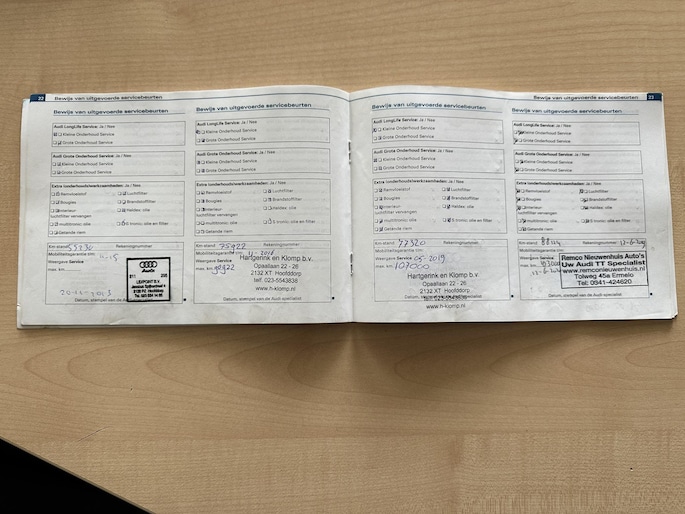 22 Bewijs van uitgevoerde servicebeurten
Bewijs van uitgevoerde servicebeurten
Audi LongLife Service: Ja / Nee
Kleine Onderhoud Service
Grote Onderhoud Service
Audi Grote Onderhoud Service: Ja / Nee
Kleine Onderhoud Service
Grote Onderhoud Service
Extra (onderhouds)werkzaamheden: Ja / Nee
Remvloeistof Luchtfilter
Bougies Brandstoffilter
Interieur Haldex: olie
luchtfilter vervangen
multitronic: olie S tronic: olie en filter
Getande riem
Km-stand Rekeningnummer
Mobiliteitsgarantie t/m:
Weergave Service
max. km
Audi
LEXPOINT B.V.
Datum, stempel van de Audi specialist
Bewijs van uitgevoerde servicebeurten
Audi LongLife Service: Ja / Nee
Kleine Onderhoud Service
Grote Onderhoud Service
Audi Grote Onderhoud Service: Ja / Nee
Kleine Onderhoud Service
Grote Onderhoud Service
Extra (onderhouds)werkzaamheden: Ja / Nee
Remvloeistof Luchtfilter
Bougies Brandstoffilter
Interieur Haldex: olie
luchtfilter vervangen
multitronic: olie S tronic: olie en filter
Getande riem
Km-stand 75922 Rekeningnummer
Mobiliteitsgarantie t/m:
Weergave Service
max. km
Hartgerink en Klomp b.v.
Opaallaan 22 - 26
2132 XT Hoofddorp
telf. 023-5543838
www.h-klomp.nl
Datum, stempel van de Audi specialist
Bewijs van uitgevoerde servicebeurten 23
Bewijs van uitgevoerde servicebeurten
Audi LongLife Service: Ja / Nee
Kleine Onderhoud Service
Grote Onderhoud Service
Audi Grote Onderhoud Service: Ja / Nee
Kleine Onderhoud Service
Grote Onderhoud Service
Extra (onderhouds)werkzaamheden: Ja / Nee
Remvloeistof Luchtfilter
Bougies Brandstoffilter
Interieur Haldex: olie
luchtfilter vervangen
multitronic: olie S tronic: olie en filter
Getande riem
Km-stand 77320 Rekeningnummer
Mobiliteitsgarantie t/m:
Weergave Service 05-2019
max. km 107000
Hartgerink en Klomp b.v.
Opaallaan 22 - 26
2132 XT Hoofddorp
www.h-klomp.nl
Datum, stempel van de Audi specialist
Bewijs van uitgevoerde servicebeurten
Audi LongLife Service: Ja / Nee
Kleine Onderhoud Service
Grote Onderhoud Service
Audi Grote Onderhoud Service: Ja / Nee
Kleine Onderhoud Service
Grote Onderhoud Service
Extra (onderhouds)werkzaamheden: Ja / Nee
Remvloeistof Luchtfilter
Bougies Brandstoffilter
Interieur Haldex: olie
luchtfilter vervangen
multitronic: olie S tronic: olie en filter
Getande riem
Km-stand Rekeningnummer
Mobiliteitsgarantie t/m:
Weergave Service
max. km
Remco Nieuwenhuis Auto's
Uw Audi TT Specialist
www.remconieuwenhuis.nl
Tolweg 45a Ermelo
Tel: 0341-424620
Datum, stempel van de Audi specialist